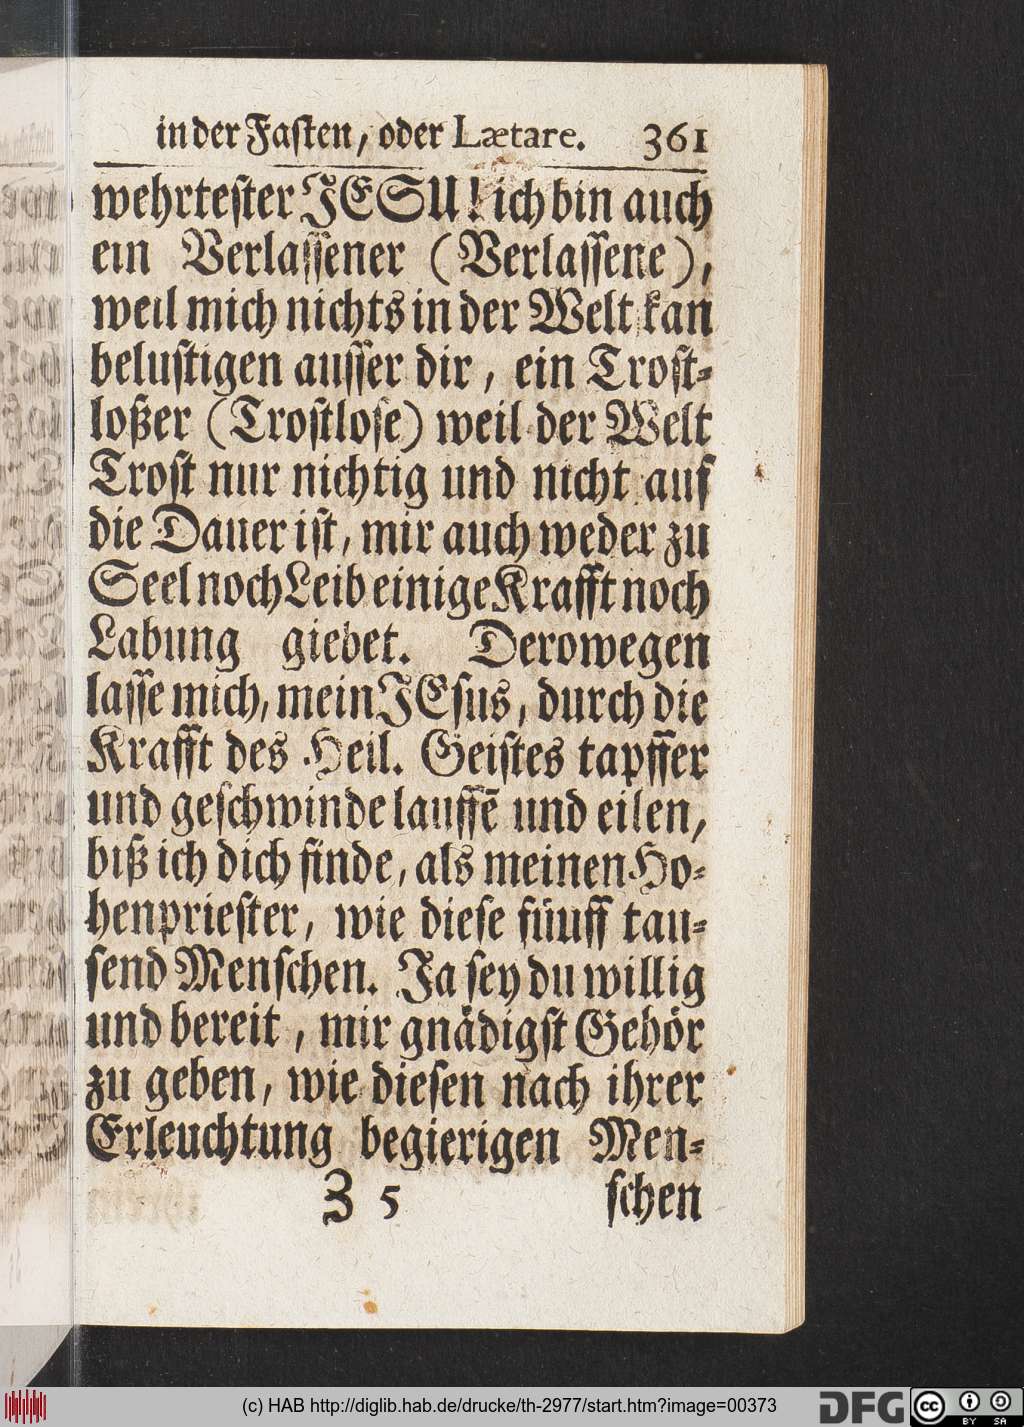 in der Faſten, oder Lætare. 361
wehrteſter JESU! ich bin auch
ein Verlaſſener (Verlaſſene),
weil mich nichts in der Welt kan
beluſtigen auſſer dir, ein Troſt-
loßer (Troſtloſe) weil der Welt
Troſt nur nichtig und nicht auf
die Dauer iſt, mir auch weder zu
Seel noch Leib einige Krafft noch
Labung giebet. Derowegen
laſſe mich, mein JEſus, durch die
Krafft des Heil. Geiſtes tapffer
und geſchwinde lauffē und eilen,
biß ich dich finde, als meinen Ho-
henprieſter, wie dieſe fünff tau-
ſend Menſchen. Ja ſey du willig
und bereit, mir gnädigſt Gehör
zu geben, wie dieſen nach ihrer
Erleuchtung begierigen Men-
Z 5 ſchen
(c) HAB http://diglib.hab.de/drucke/th-2977/start.htm?image=00373
DFG cc BY SA